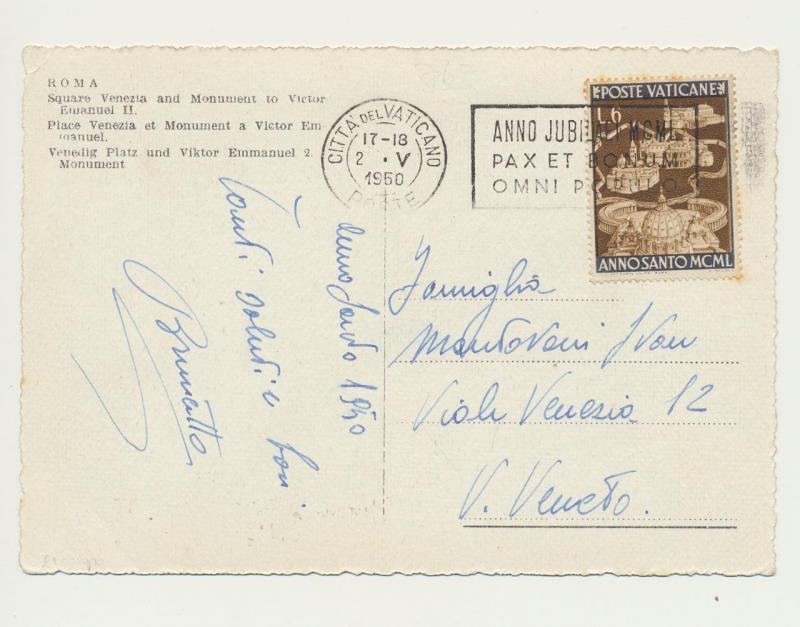 ROMA
Square Venezia and Monument to Victor
Emanuel II.
Place Venezia et Monument a Victor Em
manuel.
Venedig Platz und Viktor Emmanuel 2.
Monument
CITTÀ DEL VATICANO
17-18
2 . V
1950
POSTE
ANNO JUBILAEI MCML
PAX ET BONUM
OMNI POPULO
POSTE VATICANE
L.6
ANNO SANTO MCML
Anno Santo 1950
Tanti saluti e baci
Famiglia
Mantovani Ivan
Viale Venezia 12
V. Veneto.